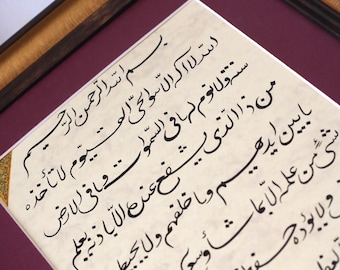 بسم الله الرحمن الرحیم
الله لا اله الا هو الحی القیوم لا تأخذه
سنة ولا نوم له ما فی السموات وما فی الارض
من ذا الذی یشفع عنده الا باذنه یعلم
ما بین ایدیهم وما خلفهم ولا
شیء من علمه الا بما شاء وسع
ولا یؤده